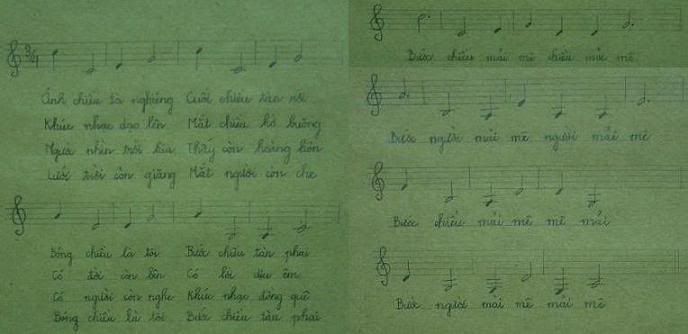 3/4
Ánh chiều tà nghiêng Cuối chiều tàn rồi
Khúc nhạc dạo lên Mắt chiều hờ buông
Người nhìn trời kia Thấy còn hoàng hôn
Lưới trời còn giăng Mắt người còn che
Bóng chiều là tôi Bước chiều tàn phai
Có đời còn bên Có lời dịu êm
Có người còn nghe Khúc nhạc đồng quê
Bóng chiều là tôi Bước chiều tàn phai
Bước chiều mải mê chiều mải mê
Bước người mải mê người mải mê
Bước chiều mải mê mê mải
Bước người mải mê mải mê